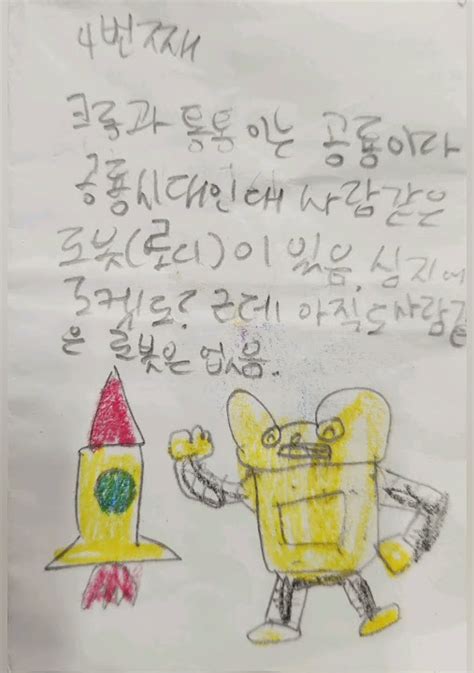 4번째
크롱과 통통이는 공룡이라
공룡시대인대 사람같은
로봇(로디)이 있음. 심지에
로켓도? 근데 아직도 사람같
은 로봇은 없음.